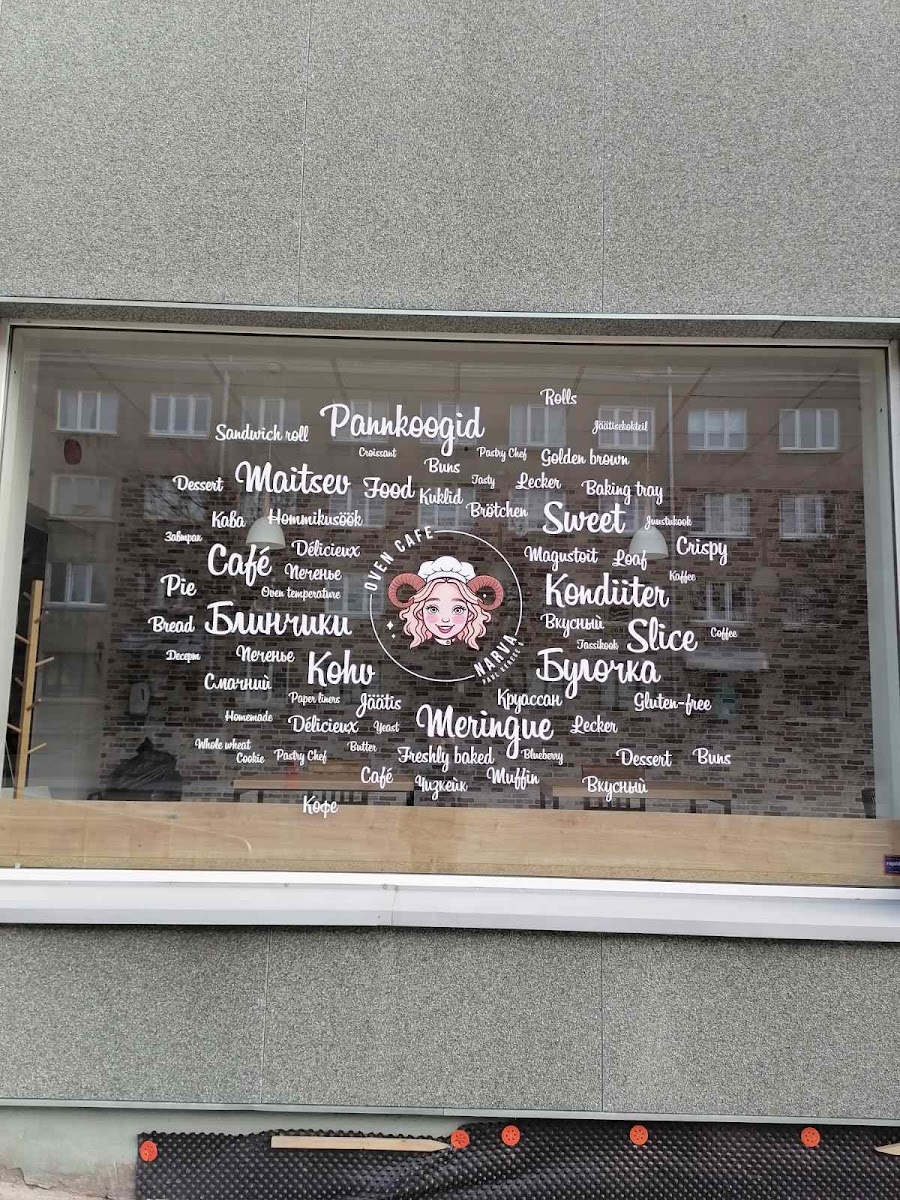 Rolls
Pannkoogid
Jäätisekokteil
Sandwich roll
Croissant
Pastry Chef
Golden brown
Buns
Dessert
Maitsev
Food
Tasty
Lecker
Baking tray
Kuklid
Brötchen
Sweet
Juustukook
Кава
Hommikusöök
Завтрак
Café
Délicieux
Печенье
Magustoit
Loaf
Crispy
Kaffee
Pie
Oven temperature
Kondiiter
OVEN CAFE
NARVA
Bread
Блинчики
Вкусный
Slice
Coffee
Tassikook
Десерт
Печенье
Kohv
Булочка
Смачний
Paper liners
Jäätis
Круассан
Gluten-free
Homemade
Délicieux
Yeast
Meringue
Lecker
Whole wheat
Cookie
Pastry Chef
Butter
Freshly baked
Blueberry
Dessert
Buns
Café
Чизкейк
Muffin
Вкусный
Кофе